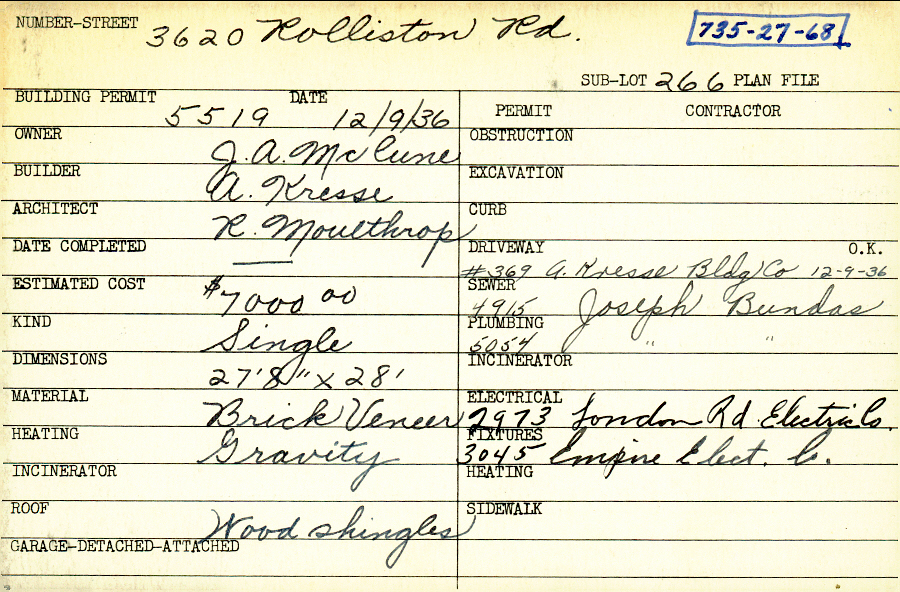 NUMBER-STREET 3620 Rolliston Rd. 735-27-68
SUB-LOT 266 PLAN FILE
BUILDING PERMIT 5519 DATE 12/9/36
PERMIT CONTRACTOR
OWNER J. A. McCune
OBSTRUCTION
BUILDER A. Kresse
EXCAVATION
ARCHITECT R. Moulthrop
CURB
DATE COMPLETED —
DRIVEWAY O.K.
#369 A. Kresse Bldg Co 12-9-36
ESTIMATED COST $7000 00
SEWER 4915 Joseph Bundas
KIND Single
PLUMBING 5054 " "
DIMENSIONS 27'8" x 28'
INCINERATOR
MATERIAL Brick Veneer
ELECTRICAL 2973 London Rd Electric Co.
HEATING Gravity
FIXTURES 3045 Empire Elect. Co.
INCINERATOR
HEATING
ROOF Wood shingles
SIDEWALK
GARAGE-DETACHED-ATTACHED